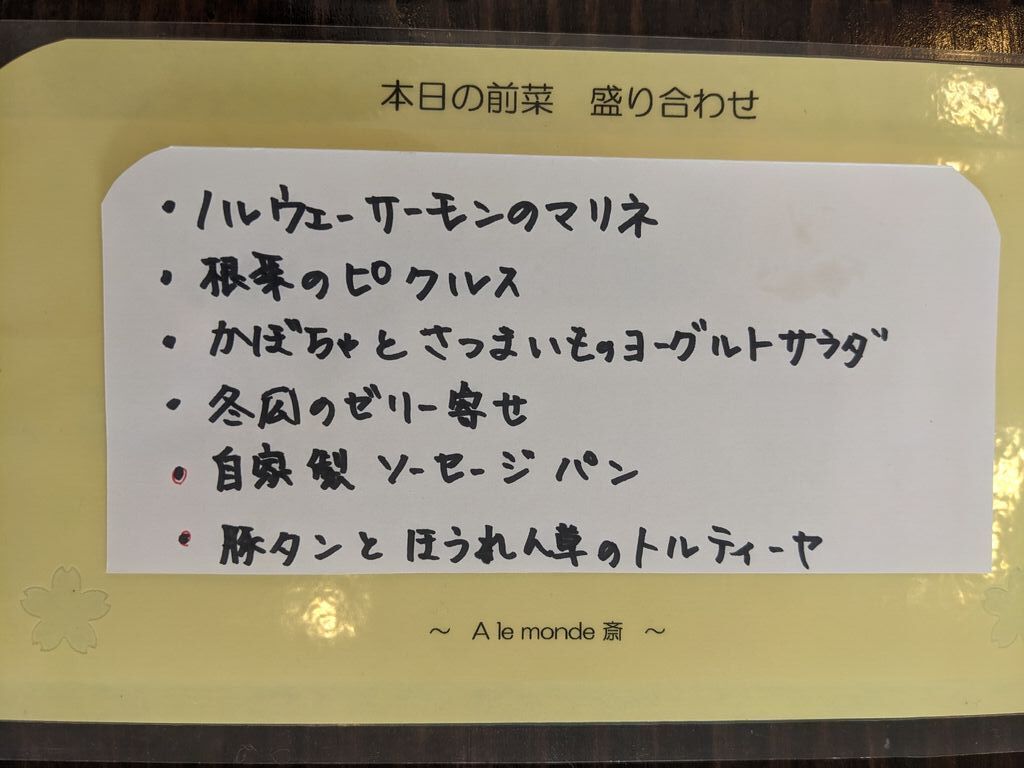 本日の前菜　盛り合わせ
・ノルウェーサーモンのマリネ
・根菜のピクルス
・かぼちゃとさつまいものヨーグルトサラダ
・冬瓜のゼリー寄せ
・自家製ソーセージパン
・豚タンとほうれん草のトルティーヤ
～ A le monde 斎 ～